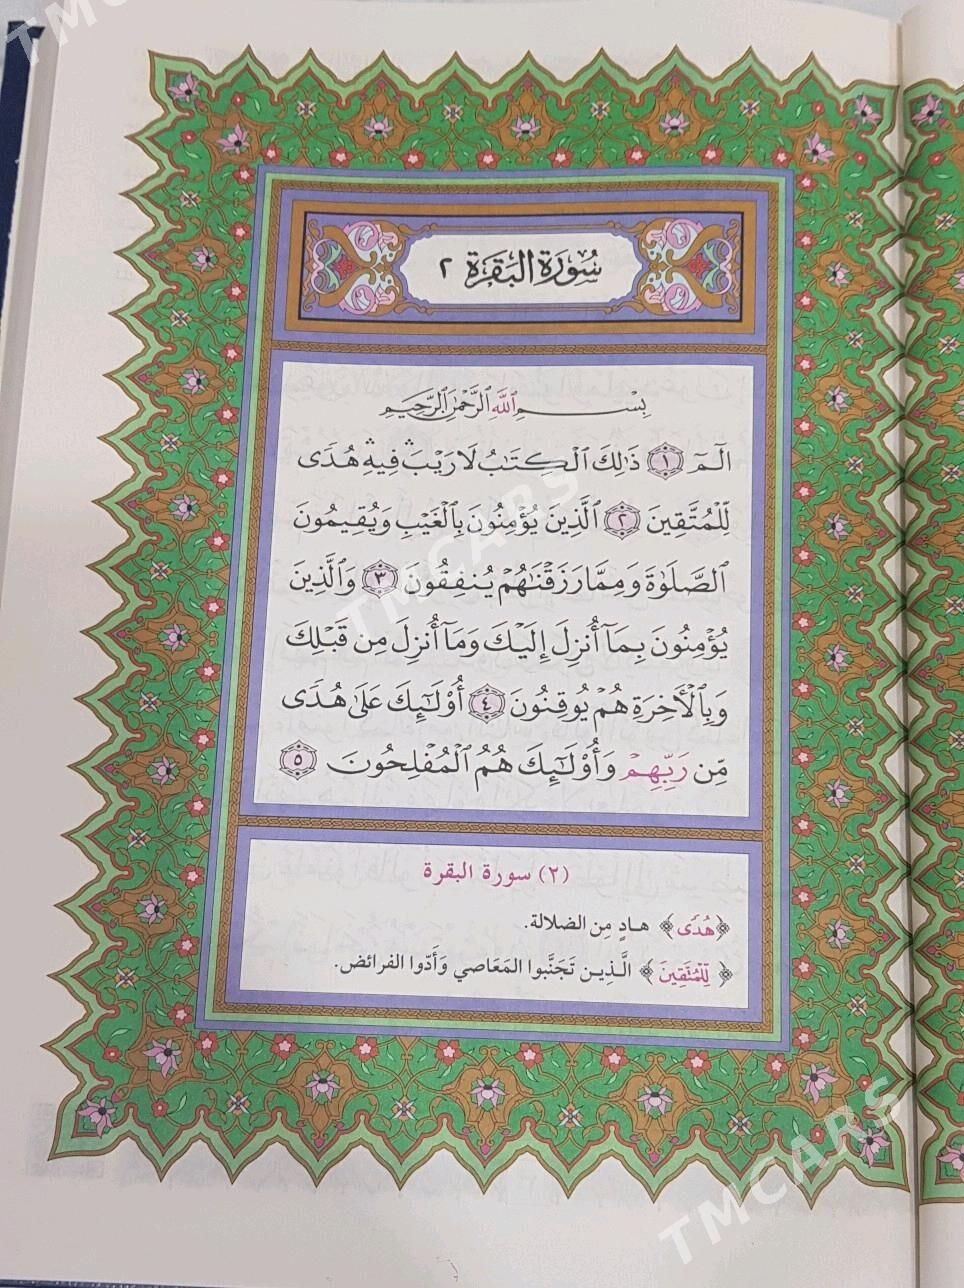 سُورَةُ البَقَرَةِ ٢
بِسْمِ ٱللَّهِ ٱلرَّحْمَٰنِ ٱلرَّحِيمِ
الٓمٓ ١ ذَٰلِكَ ٱلْكِتَٰبُ لَا رَيْبَ ۛ فِيهِ ۛ هُدًى
لِّلْمُتَّقِينَ ٢ ٱلَّذِينَ يُؤْمِنُونَ بِٱلْغَيْبِ وَيُقِيمُونَ
ٱلصَّلَوٰةَ وَمِمَّا رَزَقْنَٰهُمْ يُنفِقُونَ ٣ وَٱلَّذِينَ
يُؤْمِنُونَ بِمَآ أُنزِلَ إِلَيْكَ وَمَآ أُنزِلَ مِن قَبْلِكَ
وَبِٱلْأَخِرَةِ هُمْ يُوقِنُونَ ٤ أُوْلَٰٓئِكَ عَلَىٰ هُدًى
مِّن رَّبِّهِمْ وَأُوْلَٰٓئِكَ هُمُ ٱلْمُفْلِحُونَ ٥
(٢) سورة البقرة
﴿هُدًى﴾ هادٍ مِن الضلالة.
﴿لِّلْمُتَّقِينَ﴾ الَّذِين تَجَنَّبوا المَعَاصي وَأدّوا الفرائض.
TMCARS
TMCARS